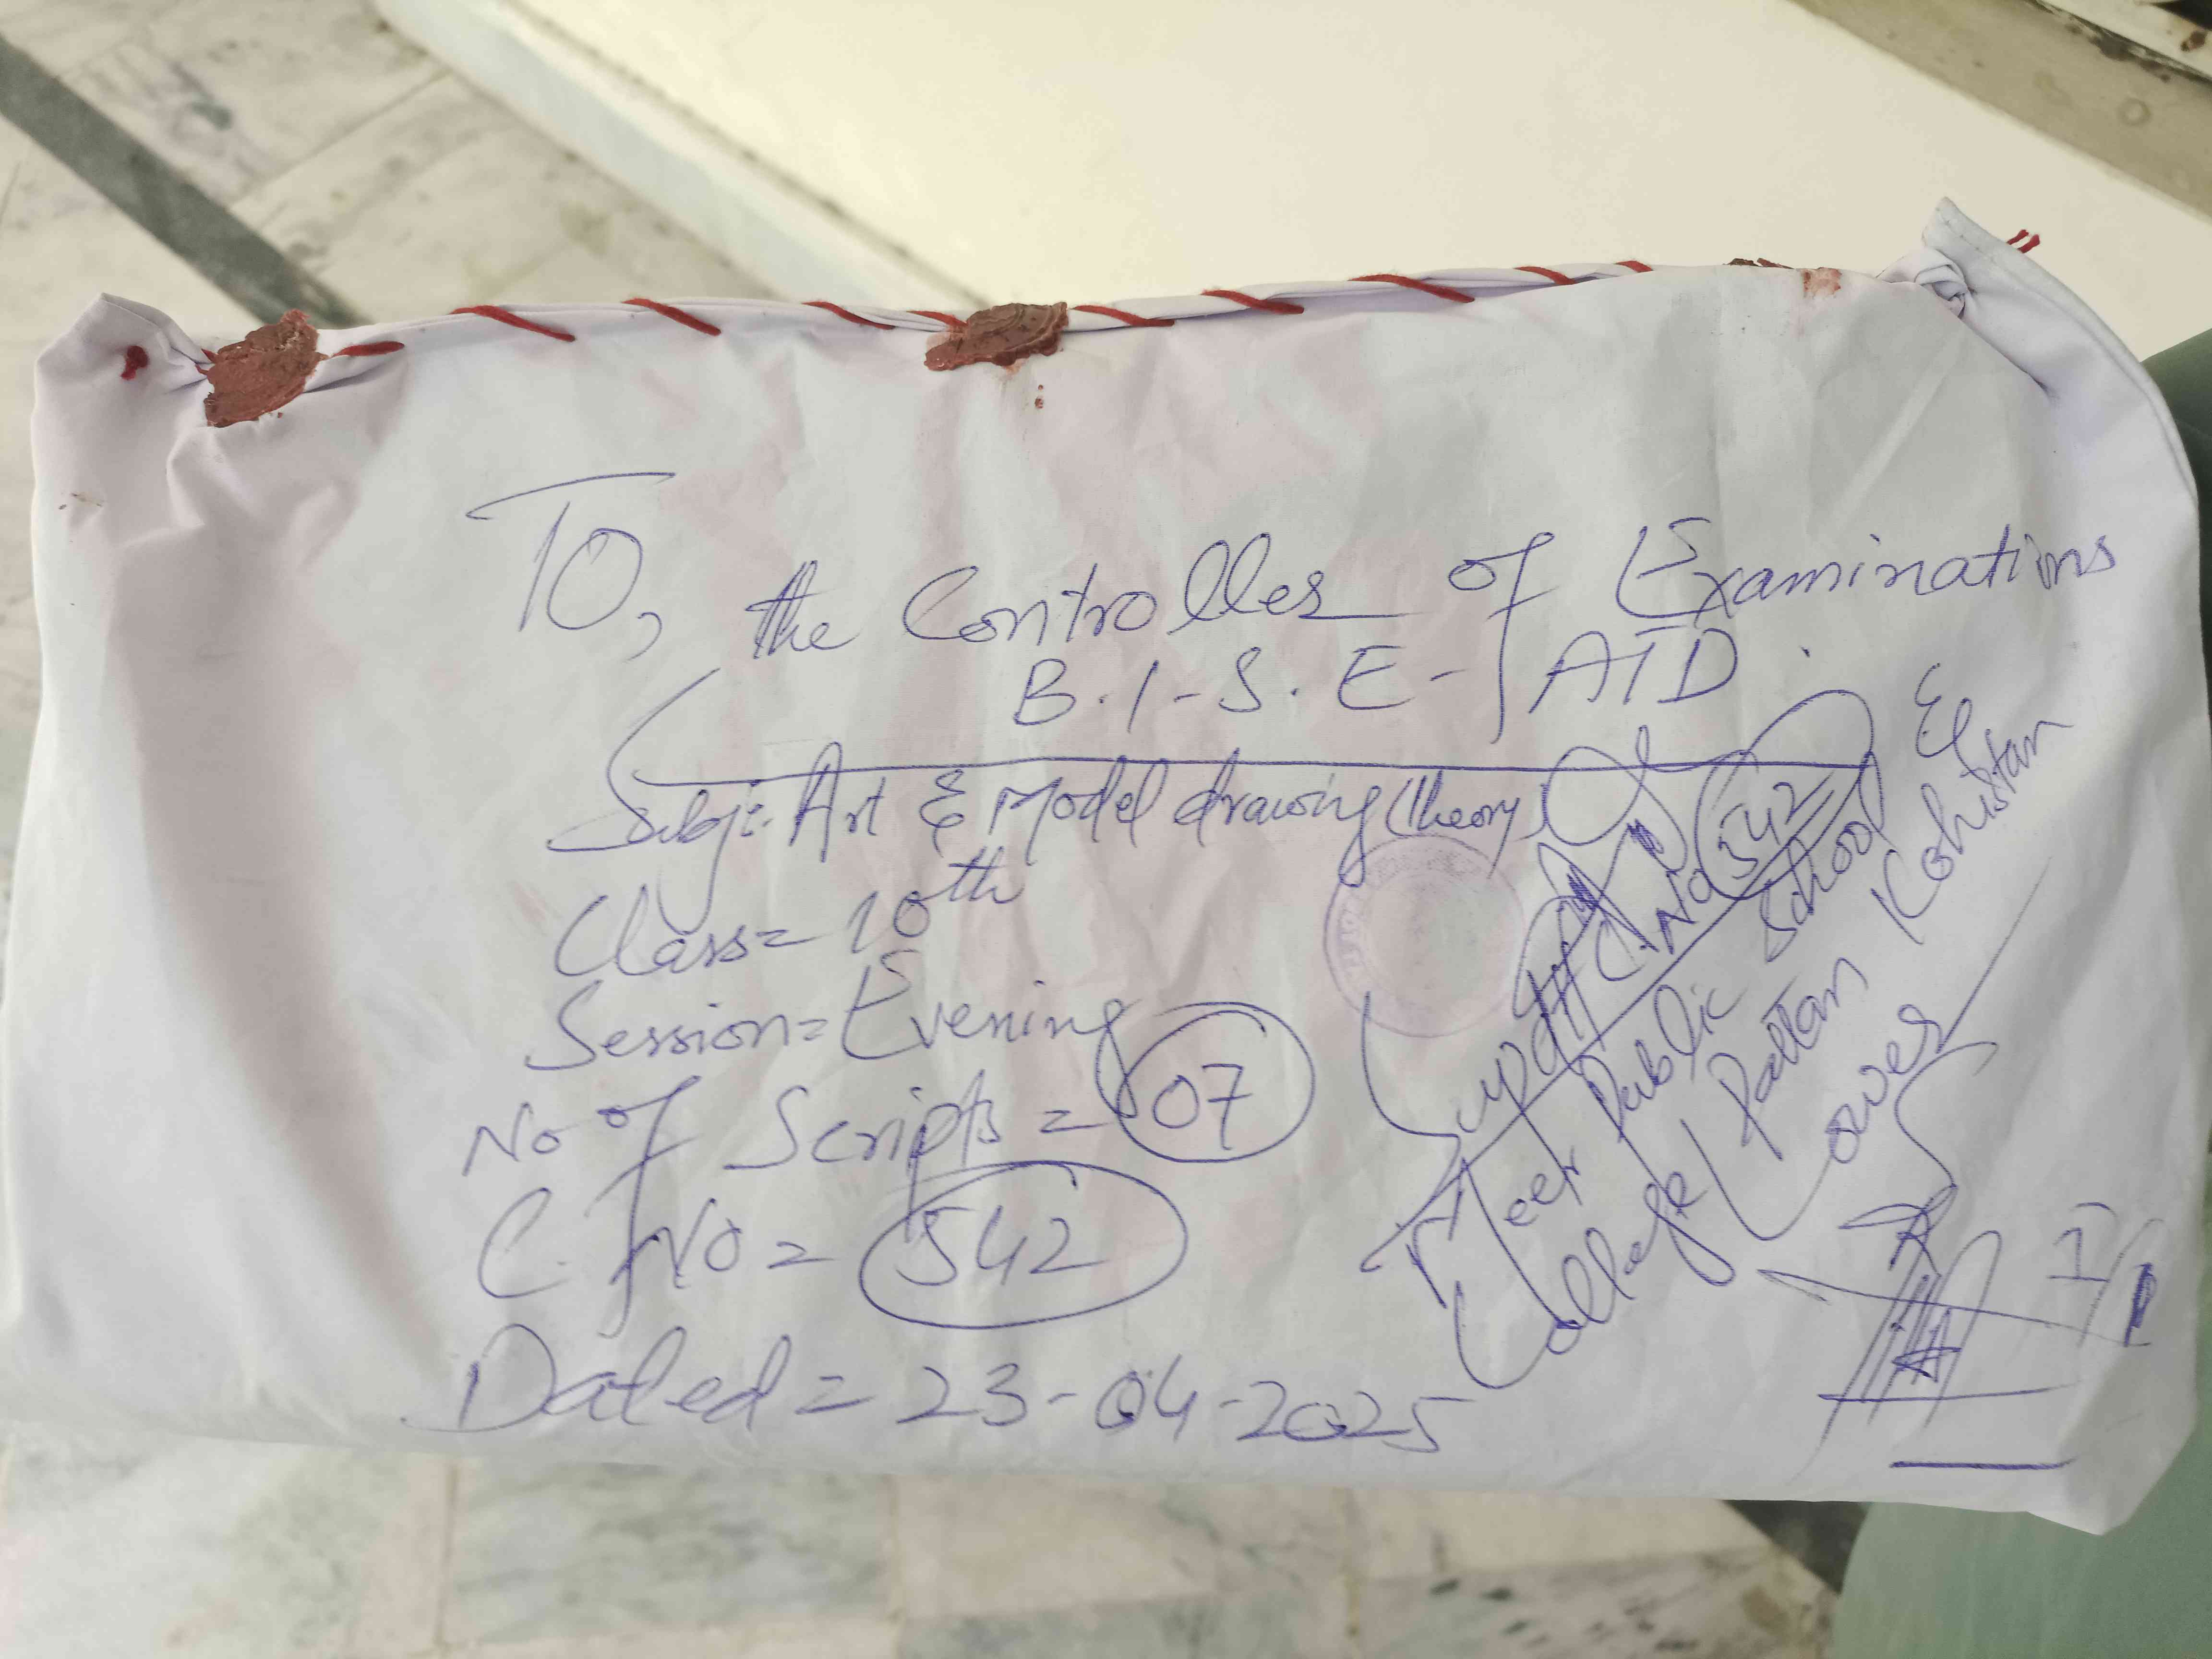 TO,
the Controller of Examinations
B.I-S.E-ATD.
Subj:- Art & Model drawing (theory)
Class= 10th
Session= Evening
No of Scripts = 07
C. No = 542
Dated = 23-04-2025
Supdtt C.No 542
Meer Public School &
College Pattan Kohistan
Lower
I/I